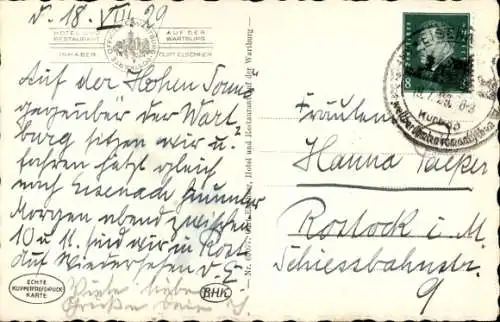 d. 18. VIII. 29
HOTEL UND RESTAURANT
AUF DER WARTBURG
INHABER
Auf der "Hohen Sonne"
gegenüber der Wart
burg sitzen wir u.
fahren jetzt gleich
nach Eisenach zurück
Morgen abend zwischen
10 u. 11. sind wir in Rost.
Auf Wiedersehen d. E.
Viele liebe
Grüße
ECHTE
KUPFERTIEFDRUCK
KARTE
BHK
Hotel und Restaurant auf der Wartburg
EISENACH
8
Fräulein
Hanna
Rostock i. M.
Schiessbahnstr.
9